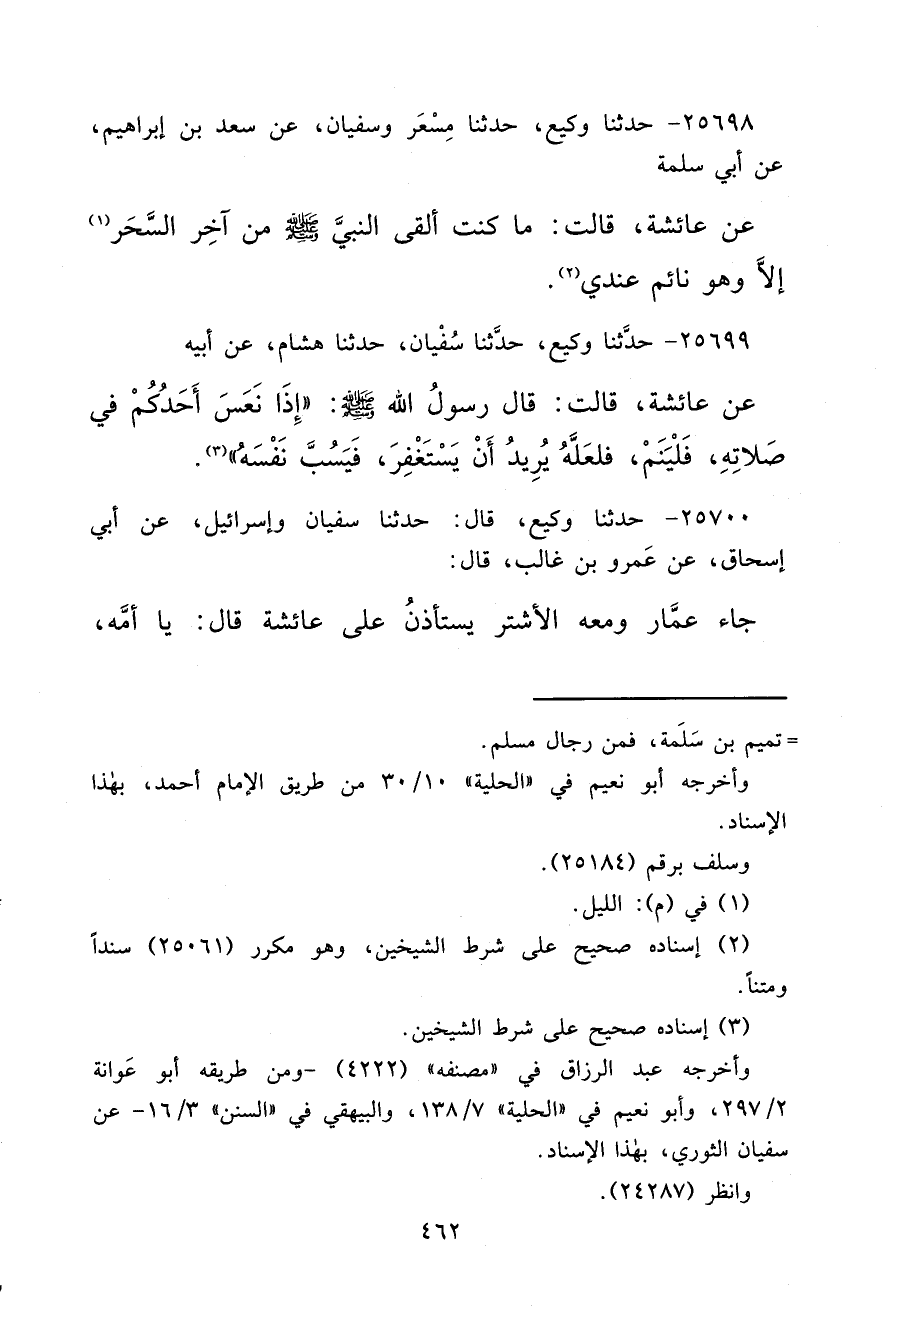 ٢٥٦٩٨- حدثنا وكيع، حدثنا مِسْعَر وسفيان، عن سعد بن إبراهيم،
عن أبي سلمة
عن عائشة، قالت: ما كنت ألقى النبيَّ ﷺ من آخِر السَّحَر(١)
إلاَّ وهو نائم عندي(٢).
٢٥٦٩٩- حدَّثنا وكيع، حدَّثنا سُفْيان، حدثنا هشام، عن أبيه
عن عائشة، قالت: قال رسولُ الله ﷺ: «إِذَا نَعَسَ أَحَدُكُمْ في
صَلاتِهِ، فَلْيَنَمْ، فلعَلَّهُ يُرِيدُ أَنْ يَسْتَغْفِرَ، فَيَسُبَّ نَفْسَهُ»(٣).
٢٥٧٠٠- حدثنا وكيع، قال: حدثنا سفيان وإسرائيل، عن أبي
إسحاق، عن عَمرو بن غالب، قال:
جاء عمَّار ومعه الأشتر يستأذنُ على عائشة قال: يا أمَّه،
= تميم بن سَلَمة، فمن رجال مسلم.
وأخرجه أبو نعيم في «الحلية» ٣٠/١٠ من طريق الإمام أحمد، بهٰذا
الإسناد.
وسلف برقم (٢٥١٨٤).
(١) في (م): الليل.
(٢) إسناده صحيح على شرط الشيخين، وهو مكرر (٢٥٠٦١) سنداً
ومتناً.
(٣) إسناده صحيح على شرط الشيخين.
وأخرجه عبد الرزاق في «مصنفه» (٤٢٢٢) -ومن طريقه أبو عَوانة
٢٩٧/٢، وأبو نعيم في «الحلية» ١٣٨/٧، والبيهقي في «السنن» ١٦/٣- عن
سفيان الثوري، بهٰذا الإسناد.
وانظر (٢٤٢٨٧).
٤٦٢